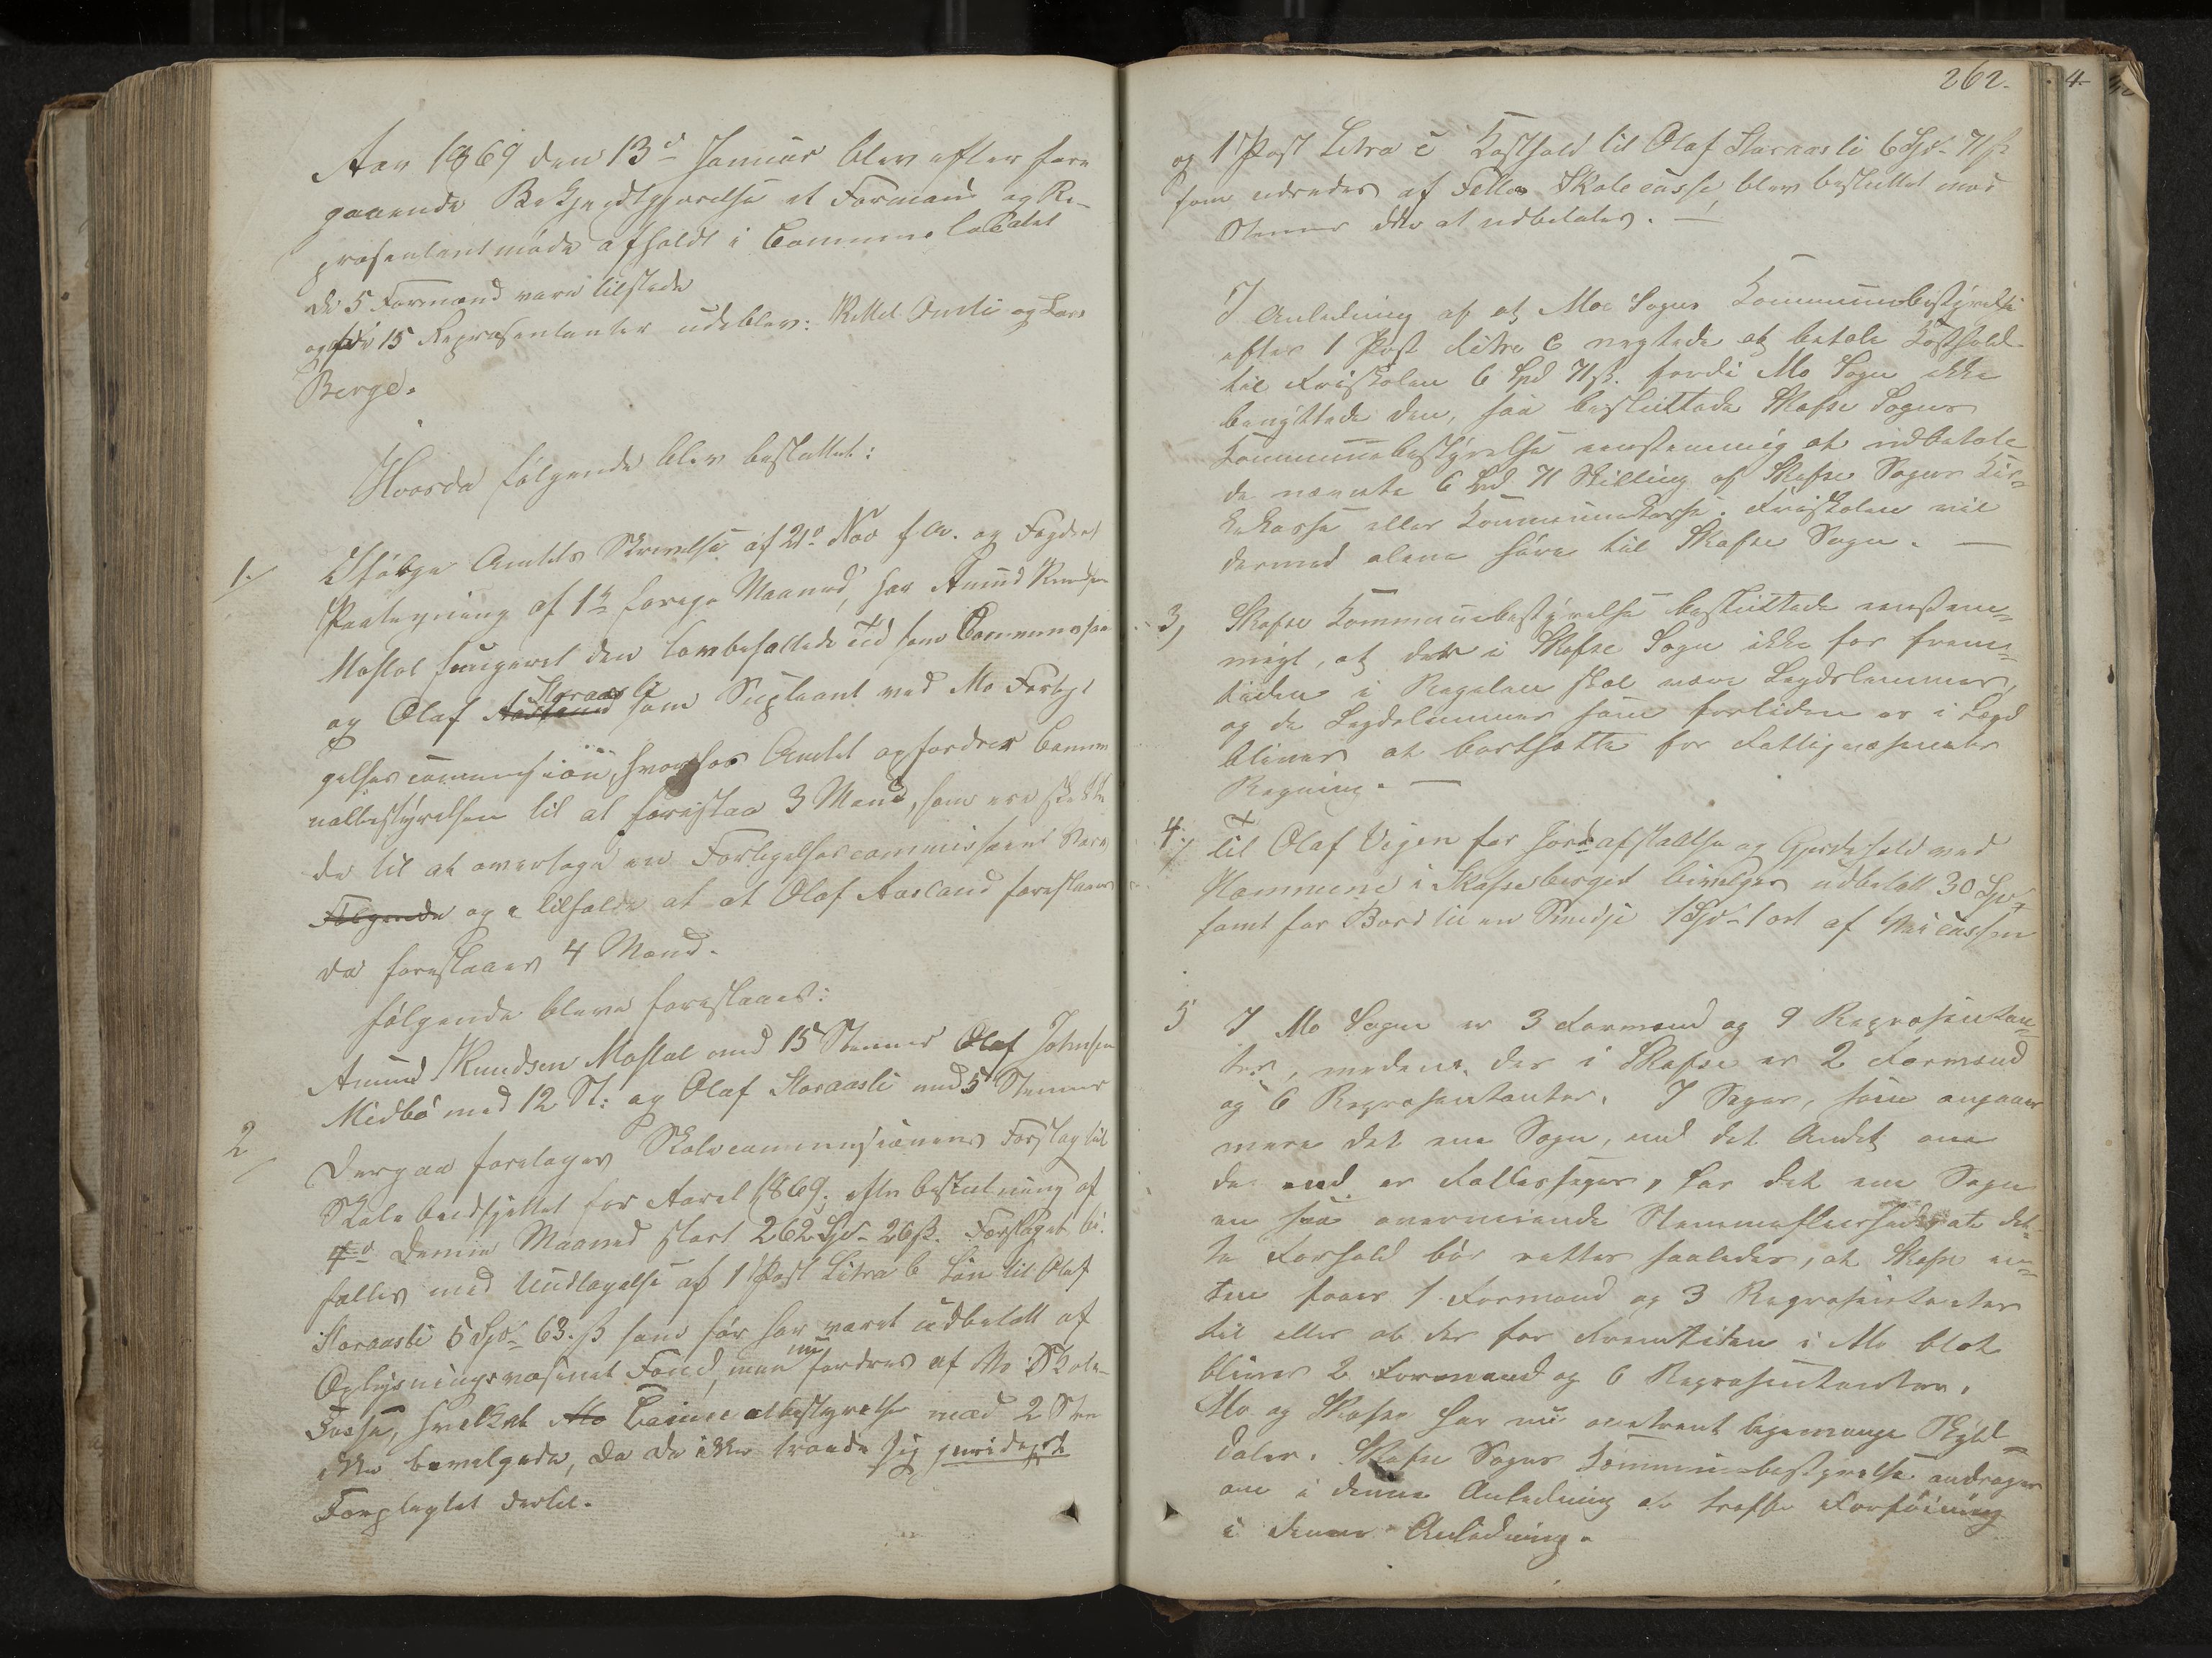 Aar 1869 den 13d Januar blev efter fore
gaaende Bekjendtgjørelse et Formand og Re-
præsentantmøde afholdt i Commune localet
De 5 Formænd vare tilstede
og af de 15 Repræsentanter udeblev: Kittel Omli og Lars
Berge.
Hvorda følgende blev besluttet:
1. Ifølge Amtets Skrivelse af 21d Nov f. A. og Fogdens
Paategning af 1ste forige Maaned, har Amund Knudsen
Mostøl fungeret den lovbefalede Tid som Commissair
og Olaf Aasland Storaasli som Supleant ved Mo Forlig
gelsescommission, hvorfor Amtet opfordrer Commu
nalbestyrelsen til at foreslaa 3 Mænd, som ere skikke
de til at overtage en Forligelsescommissairs Værv
Følgende og i tilfælde at at Olaf Aasland foreslaaes
da foreslaaes 4 Mænd.
følgende bleve foreslaaet:
Amund Knudsen Mostøl med 15 Stemmer Olaf Johnsen
Midbø med 12 St: og Olaf Storaasli med 5 Stemmer
2 Derpaa foretages Skolecommissionens Forslag til
Skole budgjettet for Aaret 1869, efter beslutning af
4d denne Maaned stort 262 Spd 26 ß. Forslaget bi.
falles med Undtagelse af 1 Post Litra b Løn til Olaf
Storaasli 5 Spd 63 ß som før har været udbetalt af
Oplysningsvæsenet Fond, men nu fordres af Mo Skole-
Casse, hvilket Mo Communalbestyrelse med 2 Stem
ikke bevilgede, da de ikke troede sig juridiskt
Forpligtet dertil.
262.
og 1 Post Litra c Kosthold til Olaf Storaasli 6 Spd 71 ß
som udredes af Felles Skolecasse, blev besluttet med
Stemmer ikke at udbetales. —
I Anledning af at Moe Sogns Kommunebestyrelse
efter 1 Post Litra C negtede at betale Kosthold
til Friskolen 6 Spd 71 ß. fordi Mo Sogn ikke
benyttede den, saa besluttede Skafse Sogns
Kommunebestyrelse eenstemmig at udbetale
de nævnte 6 Spd 71 Skilling af Skafse Sogns Kir=
kekasse eller Kommunekasse. Friskolen vil
dermed alene høre til Skafse Sogn. —
3, Skafse Kommunebestyrelse besluttede eenstem=
migt, at der i Skafse Sogn ikke for frem=
tiden i Regelen skal være Lægdslemmer,
og de Lægdslemmer som fortiden er i Lægd
bliver at bortsætte for Fattigvæsenets
Regning. —
4. Til Olaf Vigen for Jordafstaaelse og Gjerdehold ved
Hammene i Skafsebergene bevilges udbetalt 30 Spd
samt for Bord til en Smedje 1 Spd 1 ort af Veicassen
5 I Mo Sogn er 3 Formænd og 9 Repræsentan=
ter, medens der i Skafse er 2 Formænd
og 6 Repræsentanter. I Sager, som angaar
mere det ene Sogn, end det Andet om
de end er Fællessager, har det ene Sogn
en saa overveiende Stemmefleerhed, at det=
te Forhold bør rettes saaledes, at Skafse en=
ten faaer 1 Formand og 3 Repræsentanter
til eller at der for Fremtiden i Mo blot
bliver 2 Formænd og 6 Repræsentanter.
Mo og Skafse har nu omtrent ligemange Skyld
daler. Skafse Sogns Kommunebestyrelse andrager
om i denne Anledning at træffe Forføining
i denne Anledning.